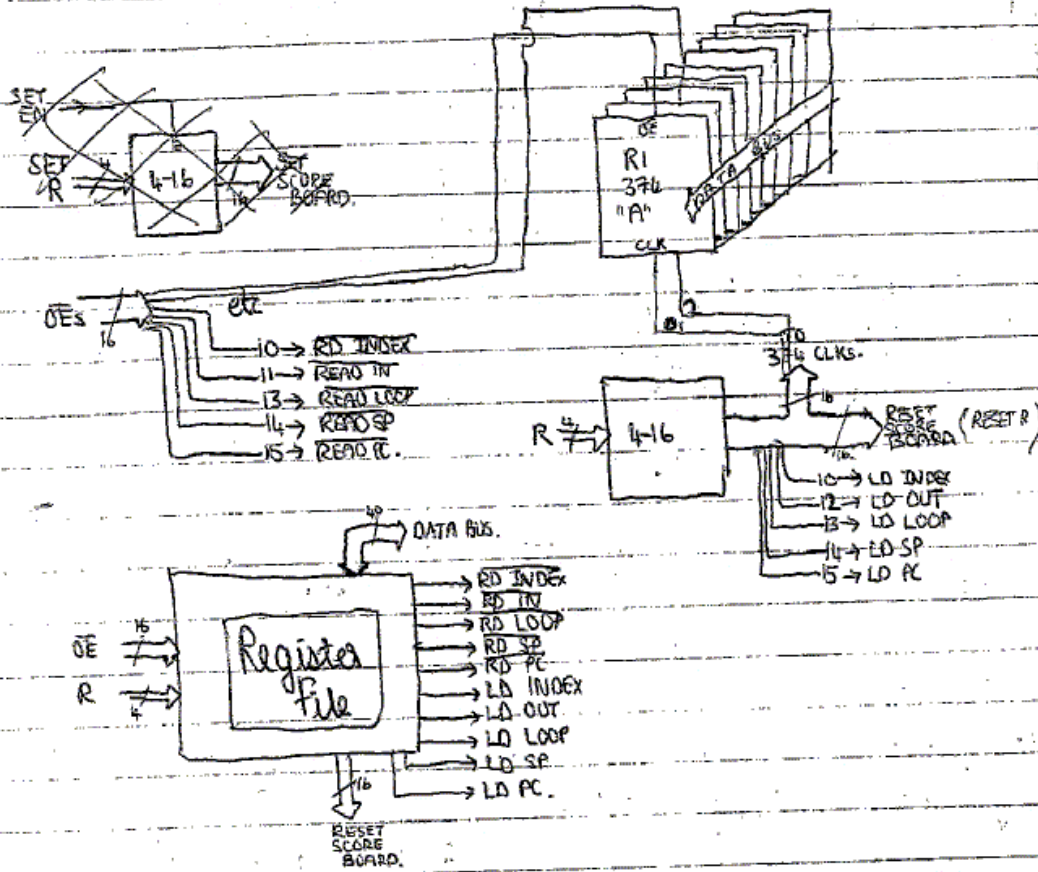 SET
EN
SET
R
4
E
4-16
16
SET
SCORE
BOARD.
OE
R1
374
"A"
CLK
DATA BUS
OEs
16
etc
10→ RD INDEX
11→ READ IN
13→ READ LOOP
14→ READ SP
15→ READ PC.
374 CLKs.
16
R
4
4-16
16
RESET
SCORE
BOARD
(RESET R)
10→ LD INDEX
12→ LD OUT
13→ LD LOOP
14→ LD SP
15→ LD PC
40
DATA BUS.
OE
16
R
4
Register
File
RD INDEX
RD IN
RD LOOP
RD SP
RD PC
LD INDEX
LD OUT
LD LOOP
LD SP
LD PC.
16
RESET
SCORE
BOARD.